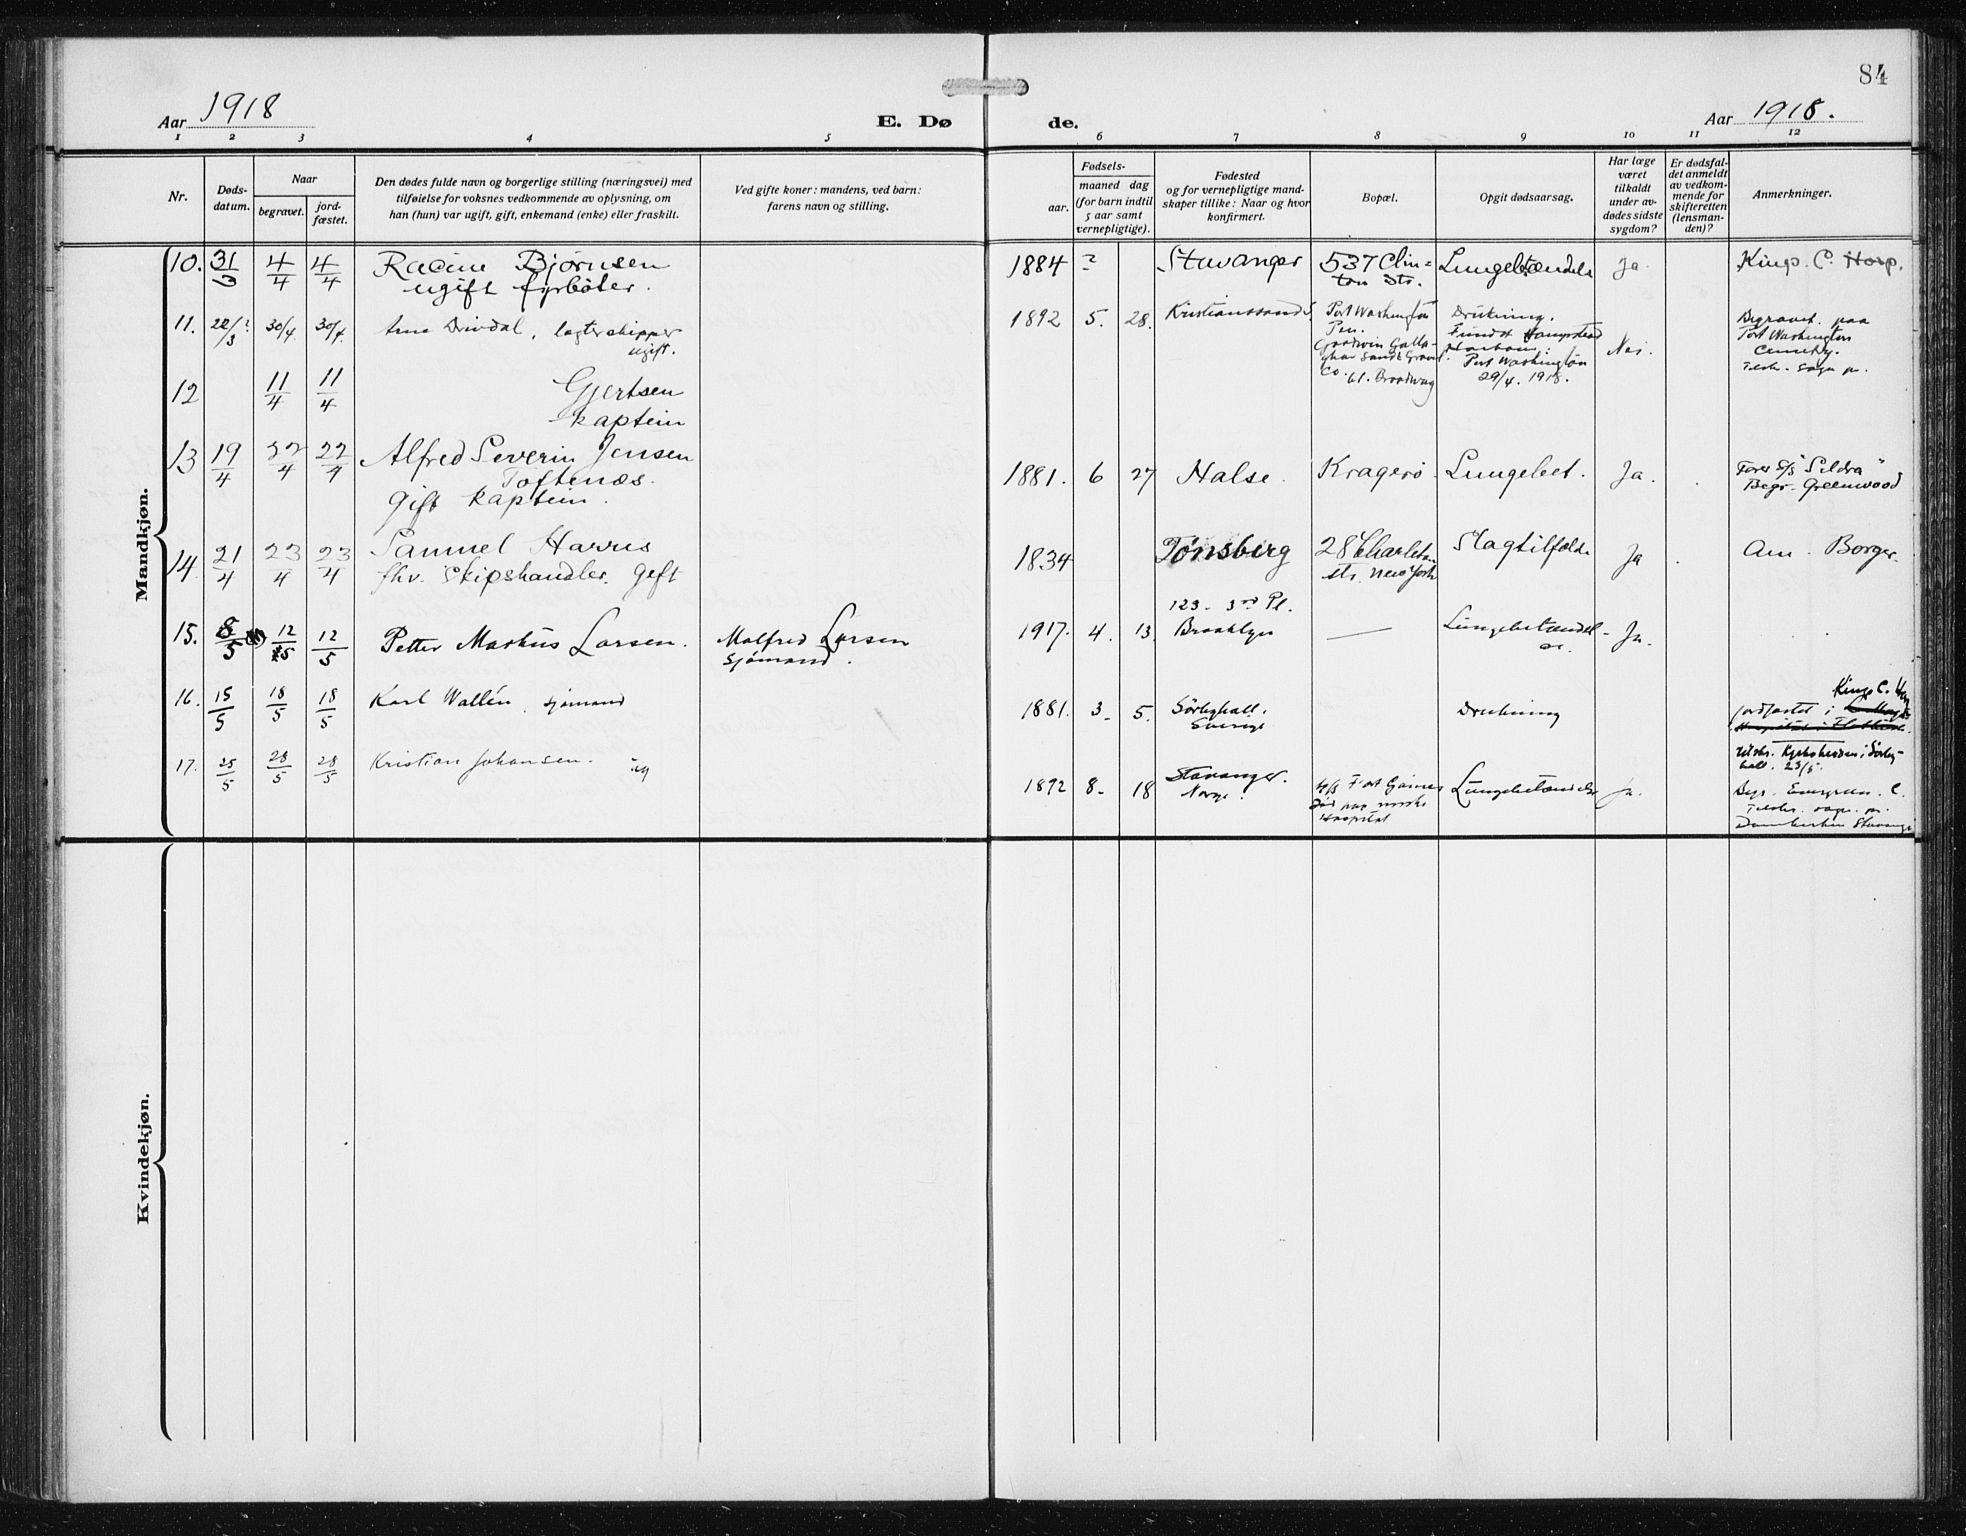 84
Aar 1918
E. Dø
de.
Aar 1918.
1 2 3 4 5 6 7 8 9 10 11 12
Nr.
Døds-
datum.
Naar
begravet.
jord-
fæstet.
Den dødes fulde navn og borgerlige stilling (næringsvei) med
tilføielse for voksnes vedkommende av oplysning, om
han (hun) var ugift, gift, enkemand (enke) eller fraskilt.
Ved gifte koner: mandens, ved barn:
farens navn og stilling.
Fødsels-
aar.
maaned dag
(for barn indtil
5 aar samt
vernepligtige).
Fødested
og for vernepligtige mand-
skaper tillike: Naar og hvor
konfirmert.
Bopæl.
Opgit dødsaarsag.
Har læge
været
tilkaldt
under av-
dødes sidste
sygdom?
Er dødsfal-
det anmeldt
av vedkom-
mende for
skifteretten
(lensman-
den)?
Anmerkninger.
Mandkjøn.
10. 31/3 4/4 4/4 Racine Bjørnsen
ugift fyrbøter.
1884 ? Stavanger 537 Clin=
ton Str.
Lungebetændelse Ja. Kings. C. Hosp.
11. 30/4 30/4 Arne Drivdal, lagterskipper
ugift.
1892 5. 28. Kristianssand S.
Port Washington
Pen.
Goodwin Galla-
gher Sand & Gravel
Co. 61. Broadway
Drukning.
Fundt Hampstead
Harbour:
Port Washington
29/4. 1918.
Nei.
Begravet paa
Port Washington
Cemetry.
12 11/4 11/4 Gjertsen
kaptein
13 19/4 22/4 22/4 Alfred Severin Jensen
Toftenæs.
Gift kaptein.
1881. 6 27 Halse. Kragerø. Lungebet. Ja.
Fører S/S "Seldra"
Begr. Greenwood
14. 21/4 23/4 23/4 Samuel Harris
fhv. Skipshandler. Gift
1834 Tønsberg 28 Charlton
str. New York
Slagtilfælde Ja Am. Borger.
15. 8/5 12/5 12/5 Petter Markus Larsen.
Malfred Larsen
sjømand.
1917. 4. 13.
123 - 3rd Pl.
Brooklyn
—
Lungebetændel-
se.
Ja.
16. 15/5 18/5 18/5 Karl Wallén, sjømand
1881. 3. 5. Sörbyhall.
Sverige
Drukning
Kings C.
jordfæstet i
23/5.
17. 25/5 28/5 28/5 Kristian Johansen. ug
1892 8. 18 Stavanger.
Norge.
Død paa norske
Hospital
Lungebetændelse Ja.
Begr. Evergreen. C.
Domkirken Stavanger
Kvindekjøn.